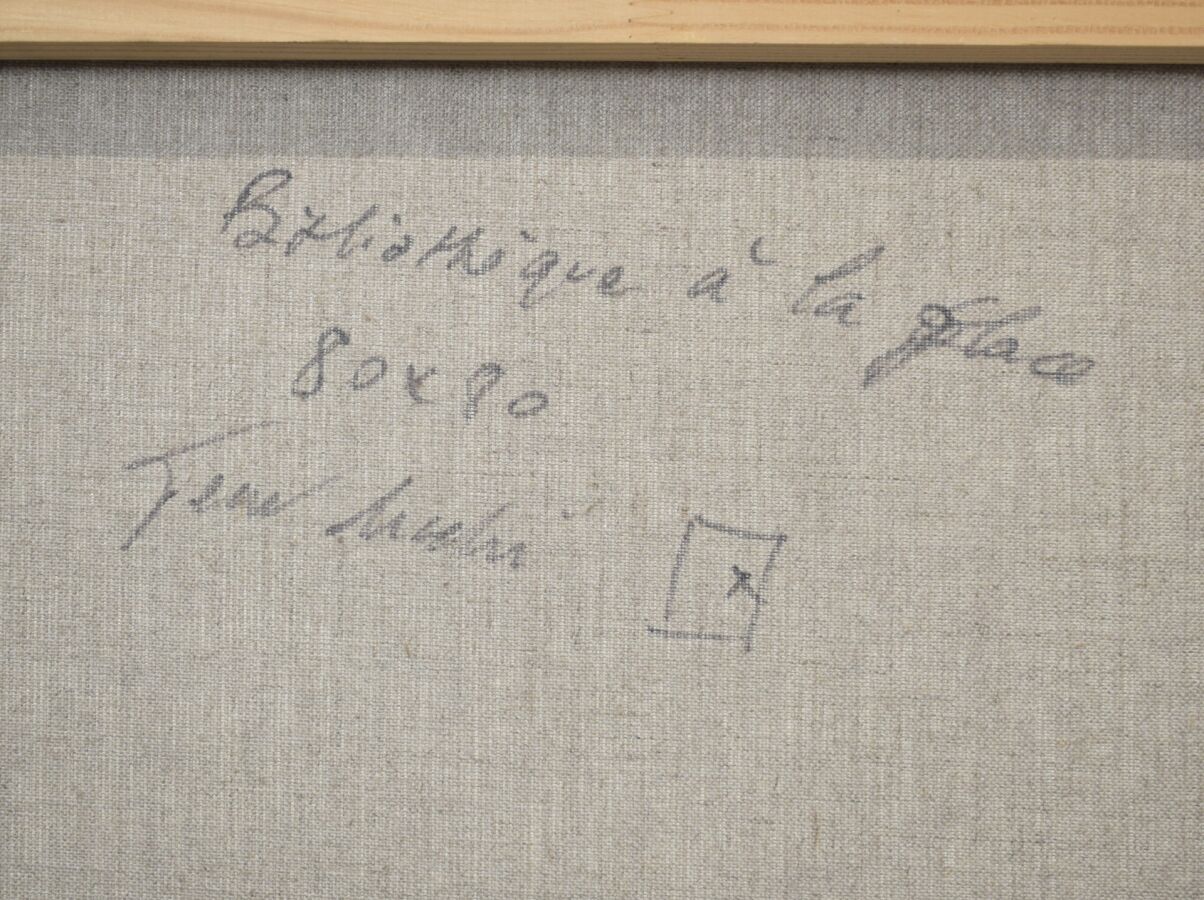 Bibliothèque à la glace
80x80
x